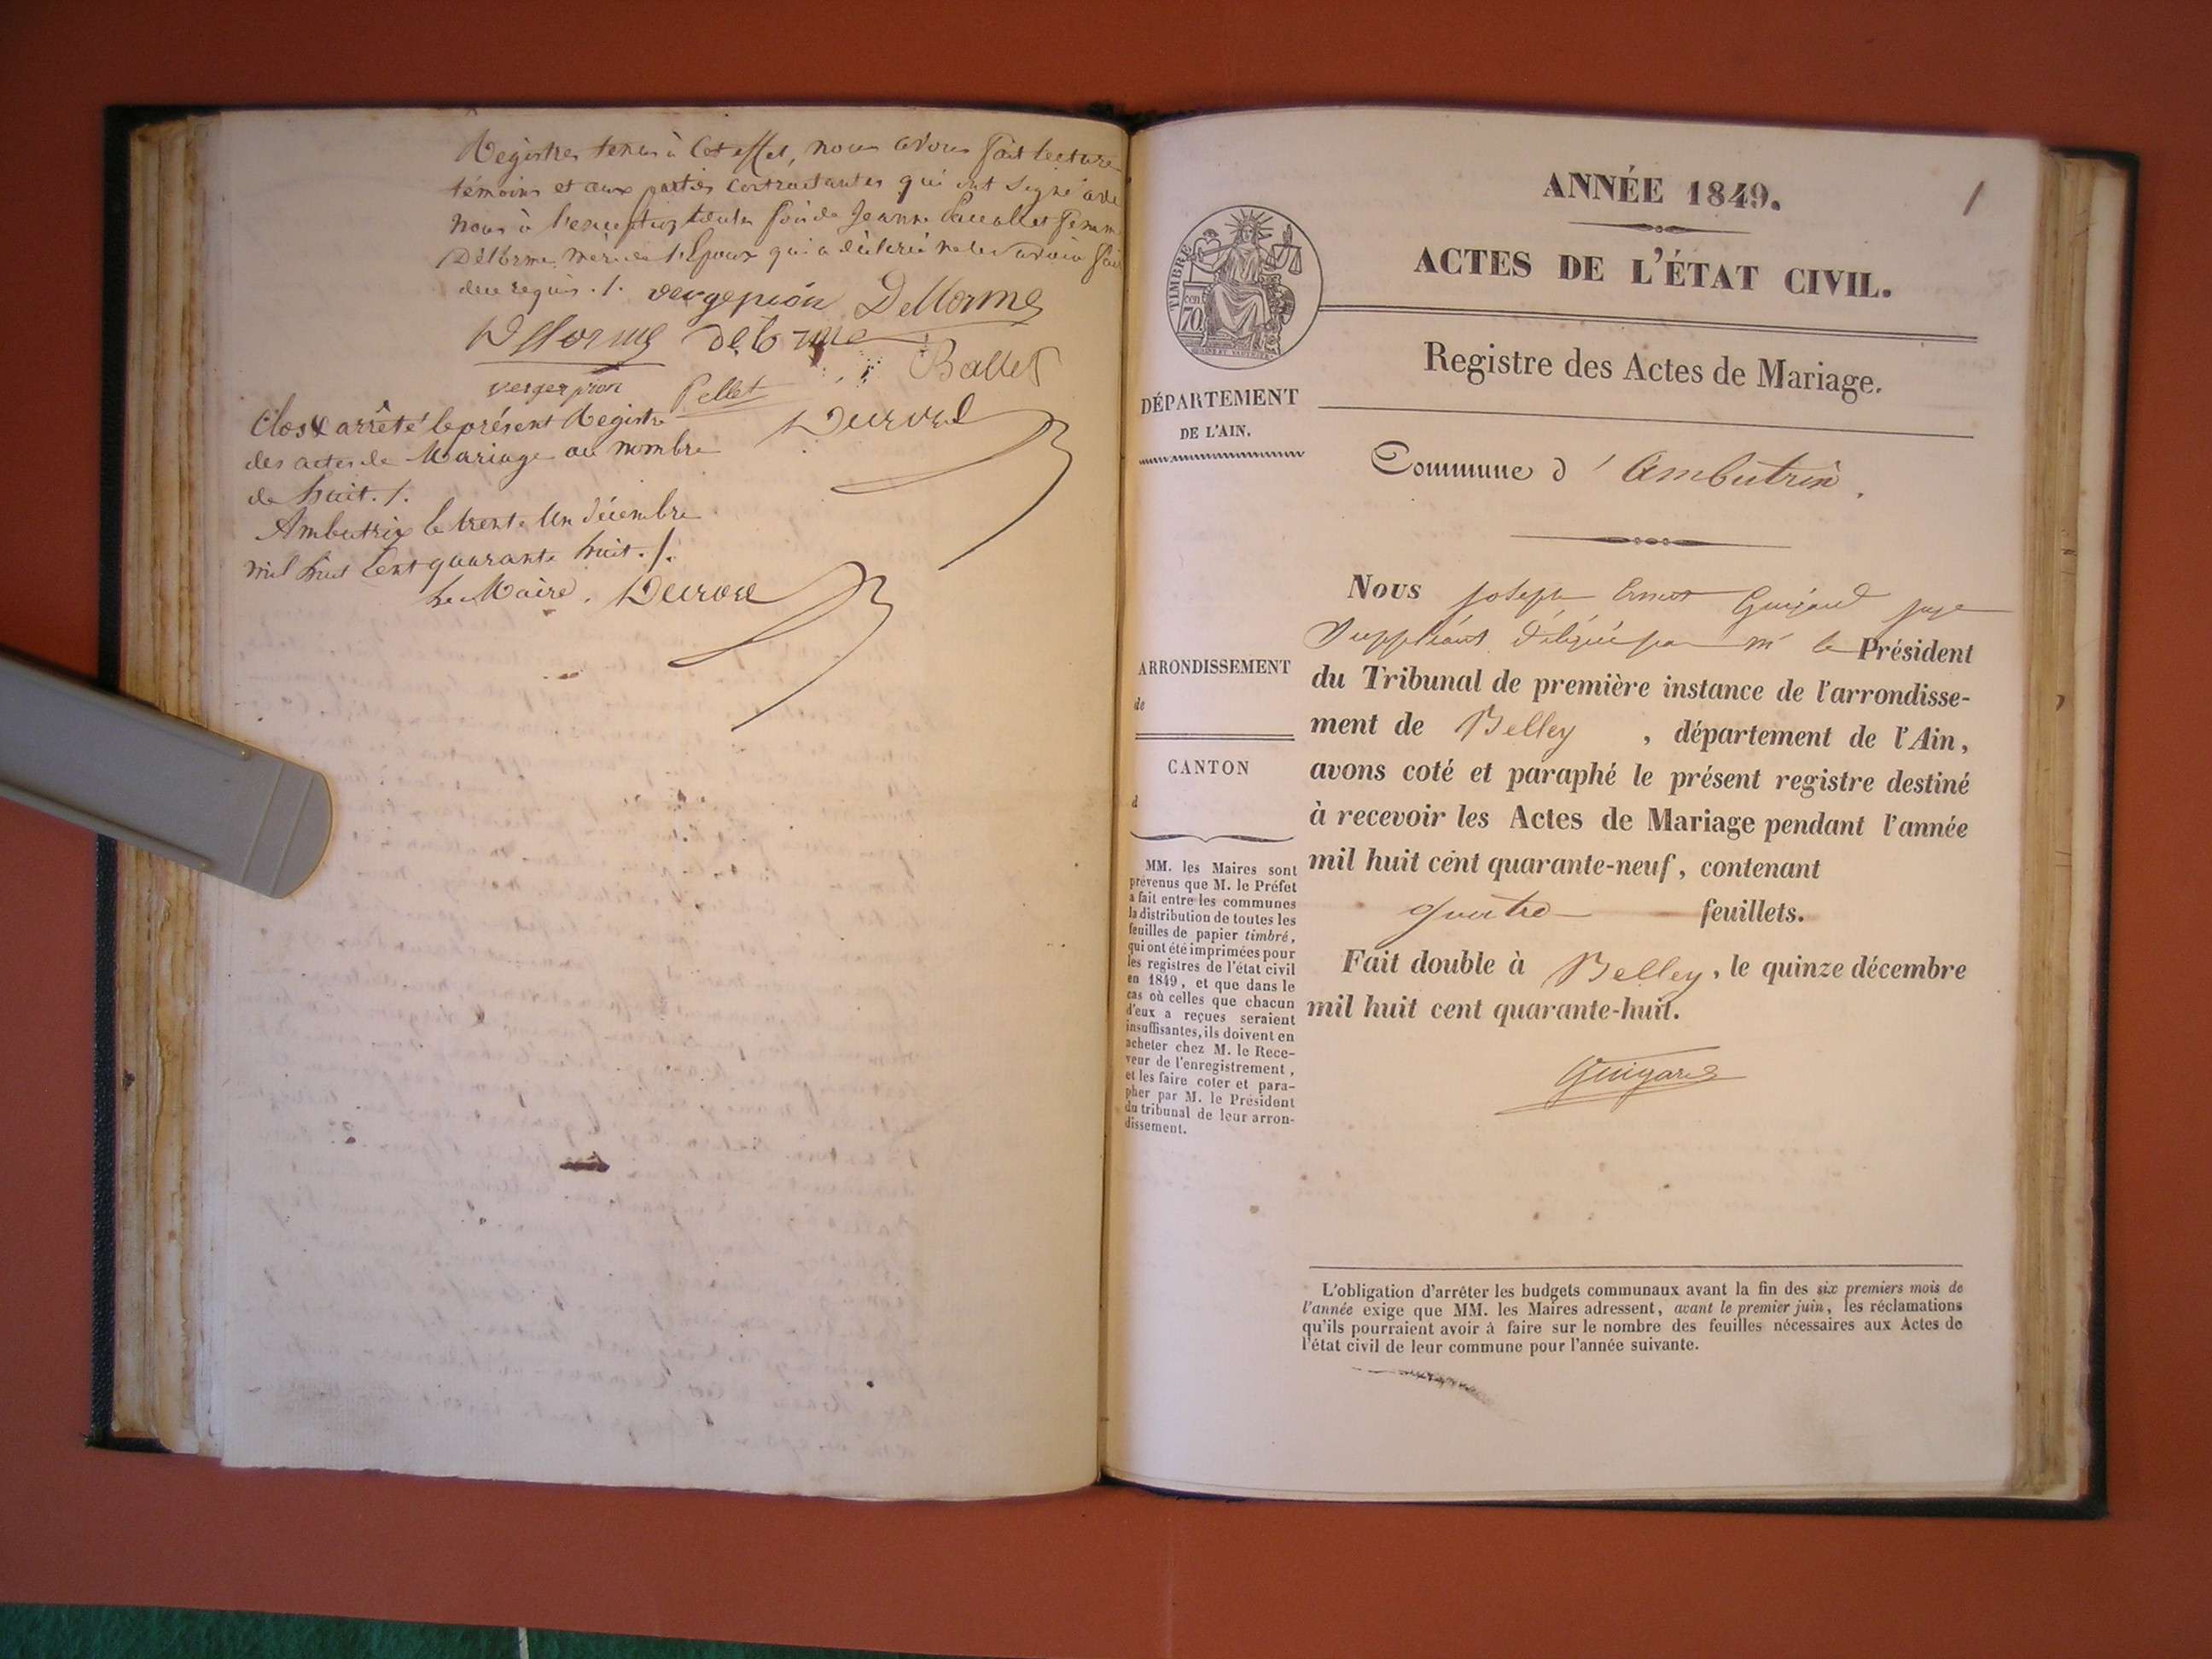 Registres tenus à Cet effet, nous avons fait lecture
témoins et aux parties Contractantes qui ont Signé avec
Nous à l'exception de Jeanne femme
Délorme, mère de l'Epoux qui a déclaré ne le savoir fai
de ce requis ./. vergepion Dellorme
Dellorme delorme
Ballet
vergepion Pellet
Clos & arrêté le présent Registre
Durval
des actes de Mariage au nombre
de huit ./.
Ambutrix le trente Un décembre
mil huit Cent quarante huit ./.
Le Maire, Durval
1
ANNÉE 1849.
ACTES DE L'ÉTAT CIVIL.
TIMBRE
cen
70
Registre des Actes de Mariage.
DÉPARTEMENT
DE L'AIN.
Commune d'Ambutrix.
Nous Joseph Ernest Guigard juge
Suppléant délégué par M le Président
du Tribunal de première instance de l'arrondisse-
ment de Belley, département de l'Ain,
avons coté et paraphé le présent registre destiné
à recevoir les Actes de Mariage pendant l'année
mil huit cent quarante-neuf, contenant
quatre feuillets.
Fait double à Belley, le quinze décembre
mil huit cent quarante-huit.
Guigard
ARRONDISSEMENT
de
CANTON
d
MM. les Maires sont
prévenus que M. le Préfet
a fait entre les communes
la distribution de toutes les
feuilles de papier timbré,
qui ont été imprimées pour
les registres de l'état civil
en 1849, et que dans le
cas où celles que chacun
d'eux a reçues seraient
insuffisantes, ils doivent en
acheter chez M. le Rece-
veur de l'enregistrement,
et les faire coter et para-
pher par M. le Président
du tribunal de leur arron-
dissement.
L'obligation d'arrêter les budgets communaux avant la fin des six premiers mois de
l'année exige que MM. les Maires adressent, avant le premier juin, les réclamations
qu'ils pourraient avoir à faire sur le nombre des feuilles nécessaires aux Actes de
l'état civil de leur commune pour l'année suivante.